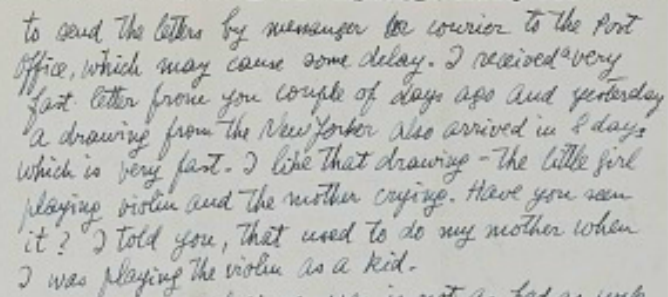 to send the letters by messenger or courier to the Post
Office, which may cause some delay. I received a very
fast letter frome you couple of days ago and yesterday
a drawing from the New Yorker also arrived in 8 days
which is very fast. I like that drawing - the little girl
playing violin and the mother crying. Have you seen
it? I told you, that used to do my mother when
I was playing the violin as a kid.
is not as bad as